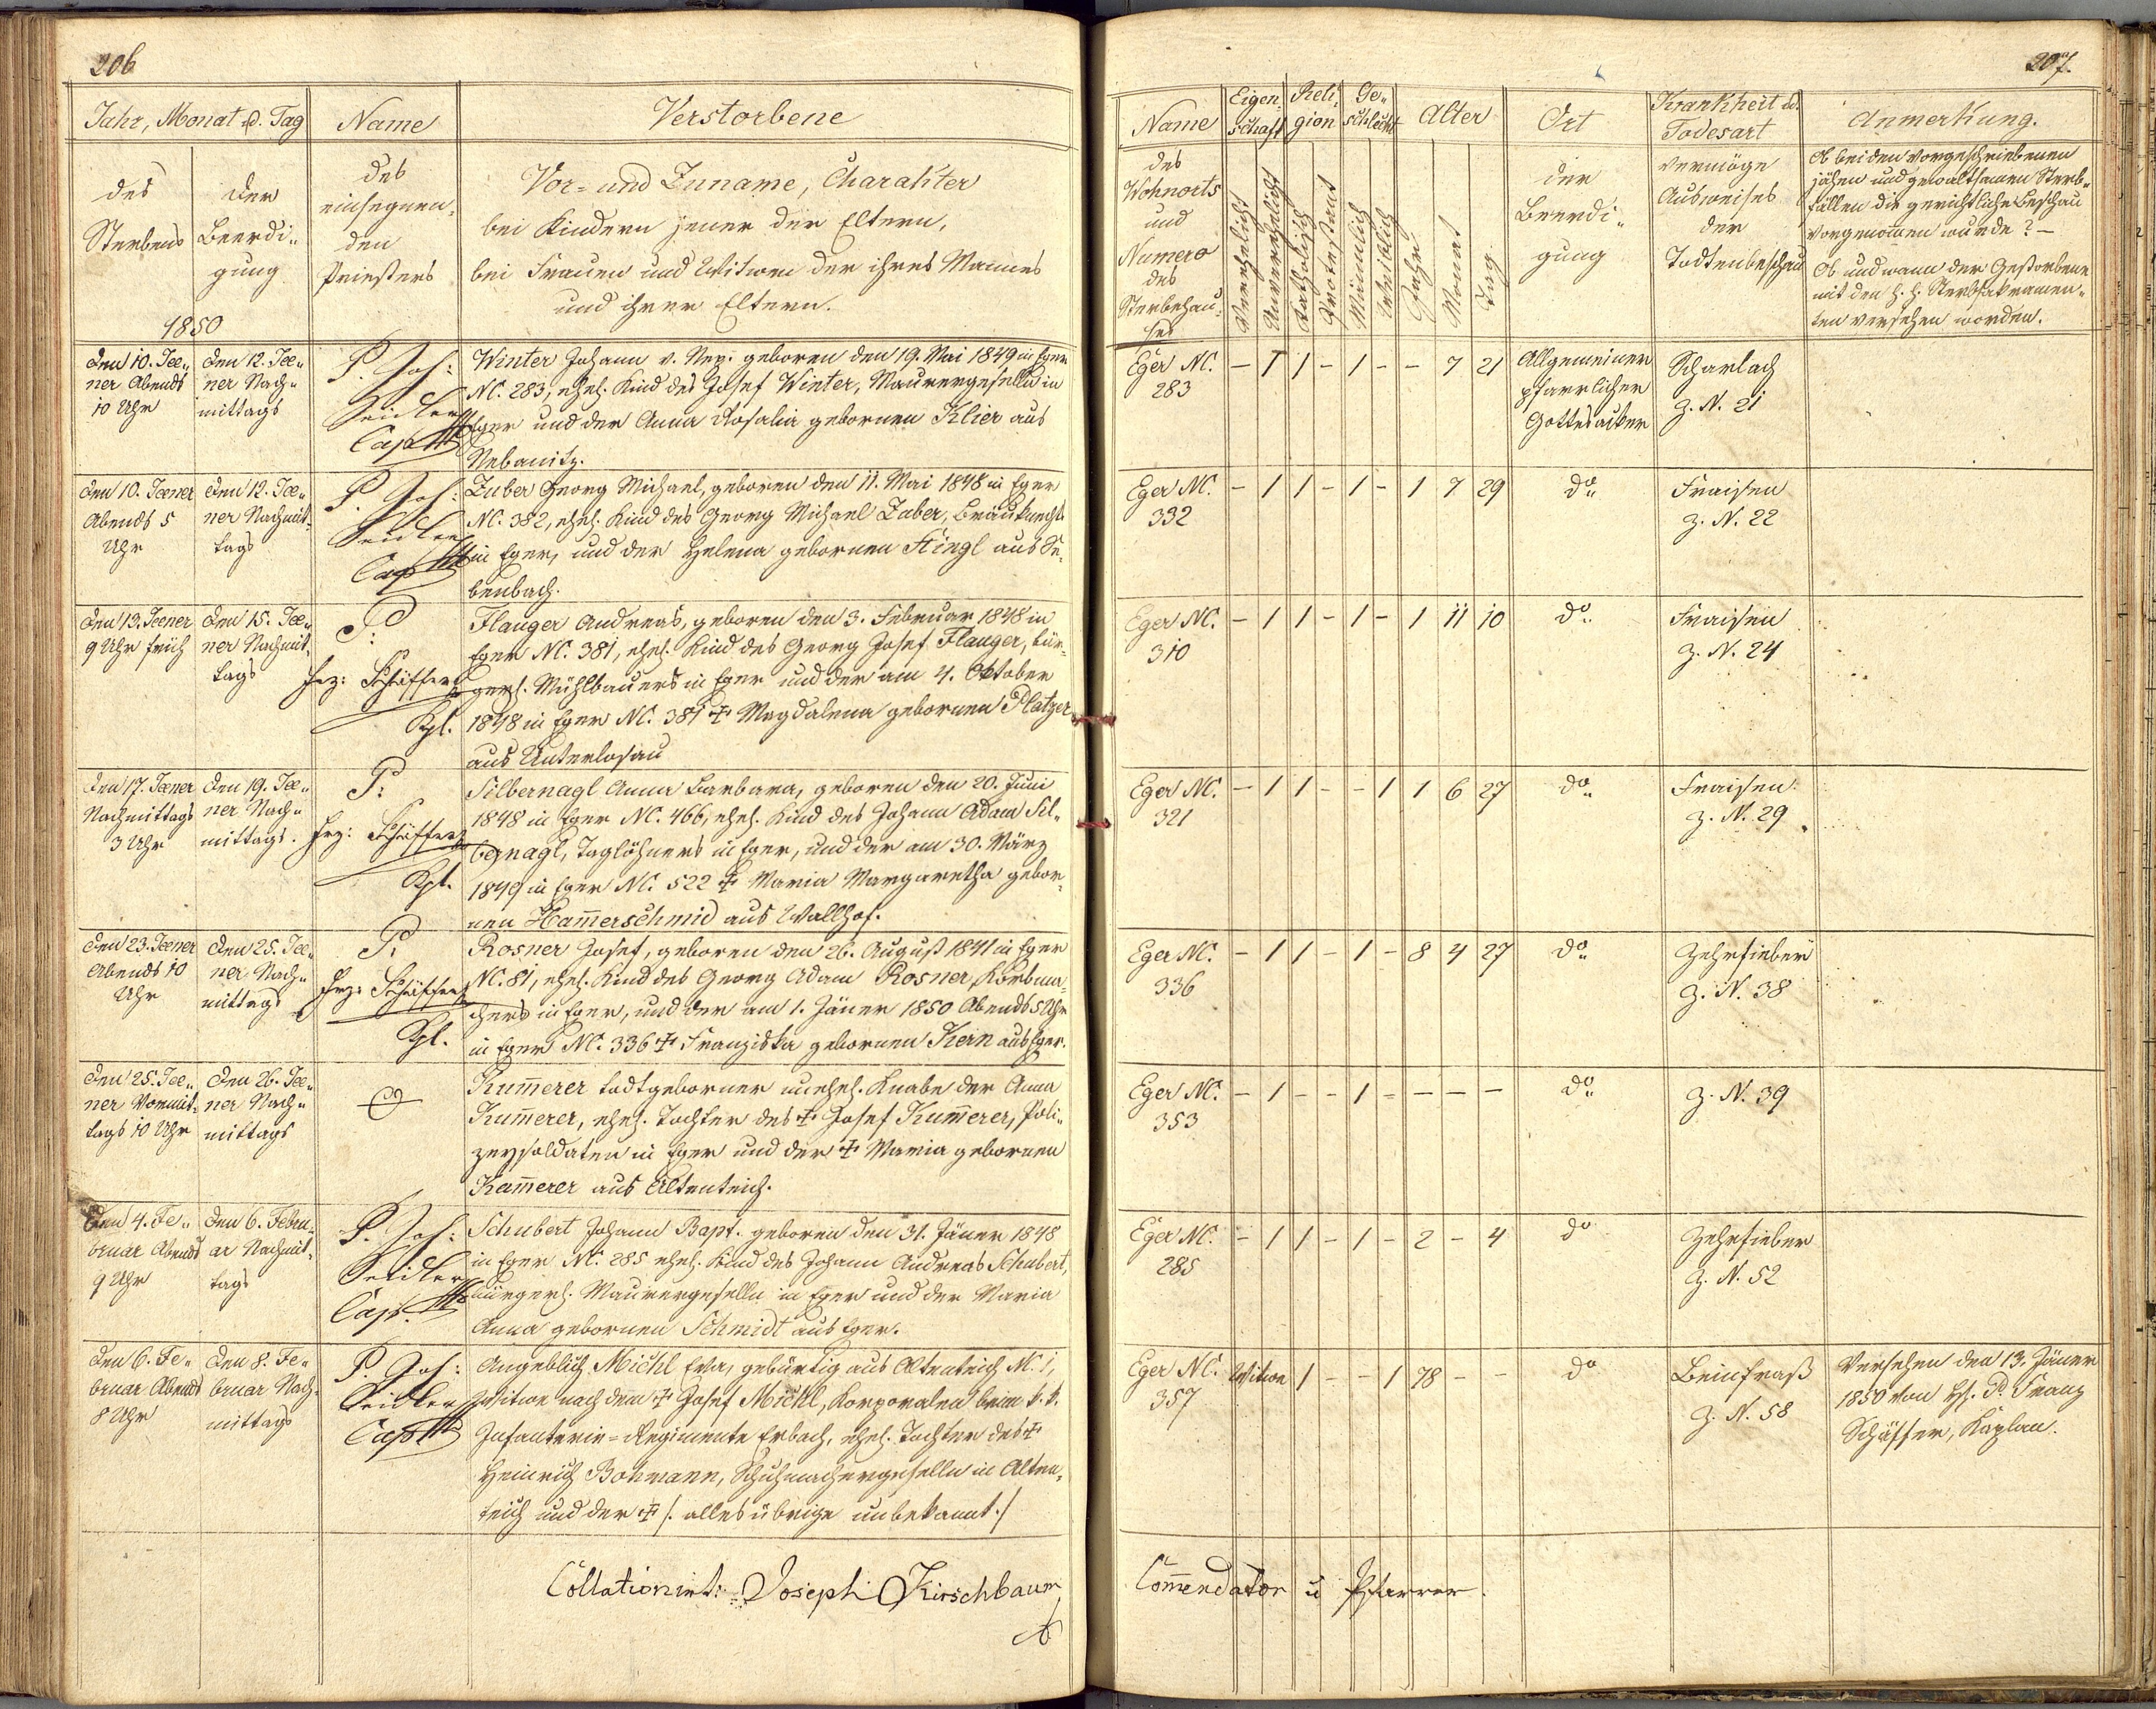 206
Jahr, Monat u. Tag
Name
Verstorbene
des
Sterbens
der
Beerdi-
gung
des
einsegnen-
den
Priesters
Vor- und Zuname, Charakter
bei Kindern jener der Eltern,
bei Frauen und Witwen der ihres Mannes
und ihrer Eltern.
1850
den 10. Jäner Abends
10 Uhr
den 12. Jä-
ner Nach-
mittags
P. Jos:
Seidler
Cap.
Winter Johann v. Nep. geboren den 19. Mai 1849 in Eger
NC. 283, ehel. Kind des Josef Winter, Maurergesellen in
Eger und der Anna Rosalia gebornen Klier aus
Nebanitz.
den 10. Jäner
Abends 5
Uhr
den 12. Jä-
ner Nachmit-
tags
P. Jos:
Seidler
Cap.
Zuber Georg Michael, geboren den 11. Mai 1848 in Eger
NC. 382, ehel. Kind des Georg Michael Zuber, Bräuknechts
in Eger, und der Helena gebornen Fingl aus Se-
benbach.
den 13. Jäner
9 Uhr früh
den 15. Jä-
ner Nachmit-
tags
P:
Frz: Schäffer
Kpl.
Flauger Andreas, geboren den 3. Februar 1848 in
Eger NC. 381, ehel. Kind des Georg Josef Flauger, bür-
gerl. Mühlbauers in Eger und der am 4. Oktober
1848 in Eger NC. 381 ✝ Magdalena gebornen Platzer
aus Unterlosau
den 17. Jäner
Nachmittags
3 Uhr
den 19. Jä-
ner Nach-
mittags.
P:
Frz: Schäffer
Kpl.
Silbernagl Anna Barbara, geboren den 20. Juni
1848 in Eger NC. 466, ehel. Kind des Johann Adam Sil-
bernagl, Taglöhners in Eger, und der am 30. März
1849 in Eger NC. 522 ✝ Maria Margaretha gebor-
nen Ham̄erschmid aus Wallhof.
den 23. Jäner
Abends 10
Uhr
den 25. Jä-
ner Nach-
mittags
P:
Frz: Schäffer
Kpl.
Rosner Josef, geboren den 26. August 1841 in Eger
NC. 81, ehel. Kind des Georg Adam Rosner, Korbma-
chers in Eger, und der am 1. Jäner 1850 Abends 5 Uhr
in Eger NC. 336 ✝ Franziska gebornen Kern aus Eger.
den 25. Jä-
ner Vormit-
tags 10 Uhr
den 26. Jä-
ner Nach-
mittags
Kum̄erer todtgeborner unehel. Knabe der Anna
Kum̄erer, ehel. Tochter des ✝ Josef Kum̄erer, Poli-
zeysoldaten in Eger und der ✝ Maria gebornen
Kam̄erer aus Altenteich.
den 4. Fe-
bruar Abends
9 Uhr
den 6. Febru-
ar Nachmit-
tags
P. Jos:
Seidler
Cap.
Schubert Johann Bapt. geboren den 31. Jäner 1848
in Eger NC. 285 ehel. Kind des Johann Andreas Schubert,
bürgerl. Maurergesellen in Eger und der Maria
Anna gebornen Schmidt aus Eger.
den 6. Fe-
bruar Abends
8 Uhr
den 8. Fe-
bruar Nach-
mittags
P. Jos:
Seidler
Cap.
Angeblich Michl Eva, gebürtig aus Altenteich N. 1,
Witwe nach dem ✝ Josef Michl, Korporalen beim k. k.
Infanterie-Regimente Erbach, ehel. Tochter des ✝
Heinrich Bohmann, Schuhmachergesellen in Alten-
teich und der ✝ /: alles übrige unbekannt :/
Collationirt: Joseph Kirschbaum
207.
Name
Eigen-
schaft
Reli-
gion
Ge-
schlecht
Alter
Ort
Krankheit u.
Todesart
Anmerkung.
des
Wohnorts
und
Numero
des
Sterbehau-
ses
Verehelicht
Unverehelicht
Katholisch
Protestant
Männlich
Weiblich
Jahr
Monat
Tag
der
Beerdi-
gung
vermöge
Ausweises
der
Todtenbeschau
Ob bei den vorgeschriebenen
jähen und gewaltsamen Sterb-
fällen die gerichtliche Beschau
vorgenom̄en wurde? -
Ob und wann der Gestorbene
mit den h. h. Sterbsakramen-
ten versehen worden.
Eger NC.
283
- 1 1 - 1 - - 7 21
Allgemeiner
pfarrlicher
Gottesacker
Scharlach
Z. N. 21
Eger NC.
332
- 1 1 - 1 - 1 7 29
do
Fraisen
Z. N. 22
Eger NC.
310
- 1 1 - 1 - 1 11 10
do
Fraisen
Z. N. 24
Eger NC.
321
- 1 1 - - 1 1 6 27
do
Fraisen
Z. N. 29
Eger NC.
336
- 1 1 - 1 - 8 4 27
do
Zehrfieber
Z. N. 38
Eger NC.
353
- 1 - - 1 - - - -
do
Z. N. 39
Eger NC.
285
- 1 1 - 1 - 2 - 4
do
Zehrfieber
Z. N. 52
Eger NC.
357
Witwe 1 - - 1 78 - -
do
Beinfraß
Z. N. 58
Versehen den 13. Jäner
1850 von H. P. Franz
Schäffer, Kaplan.
Com̄endator u Pfarrer.